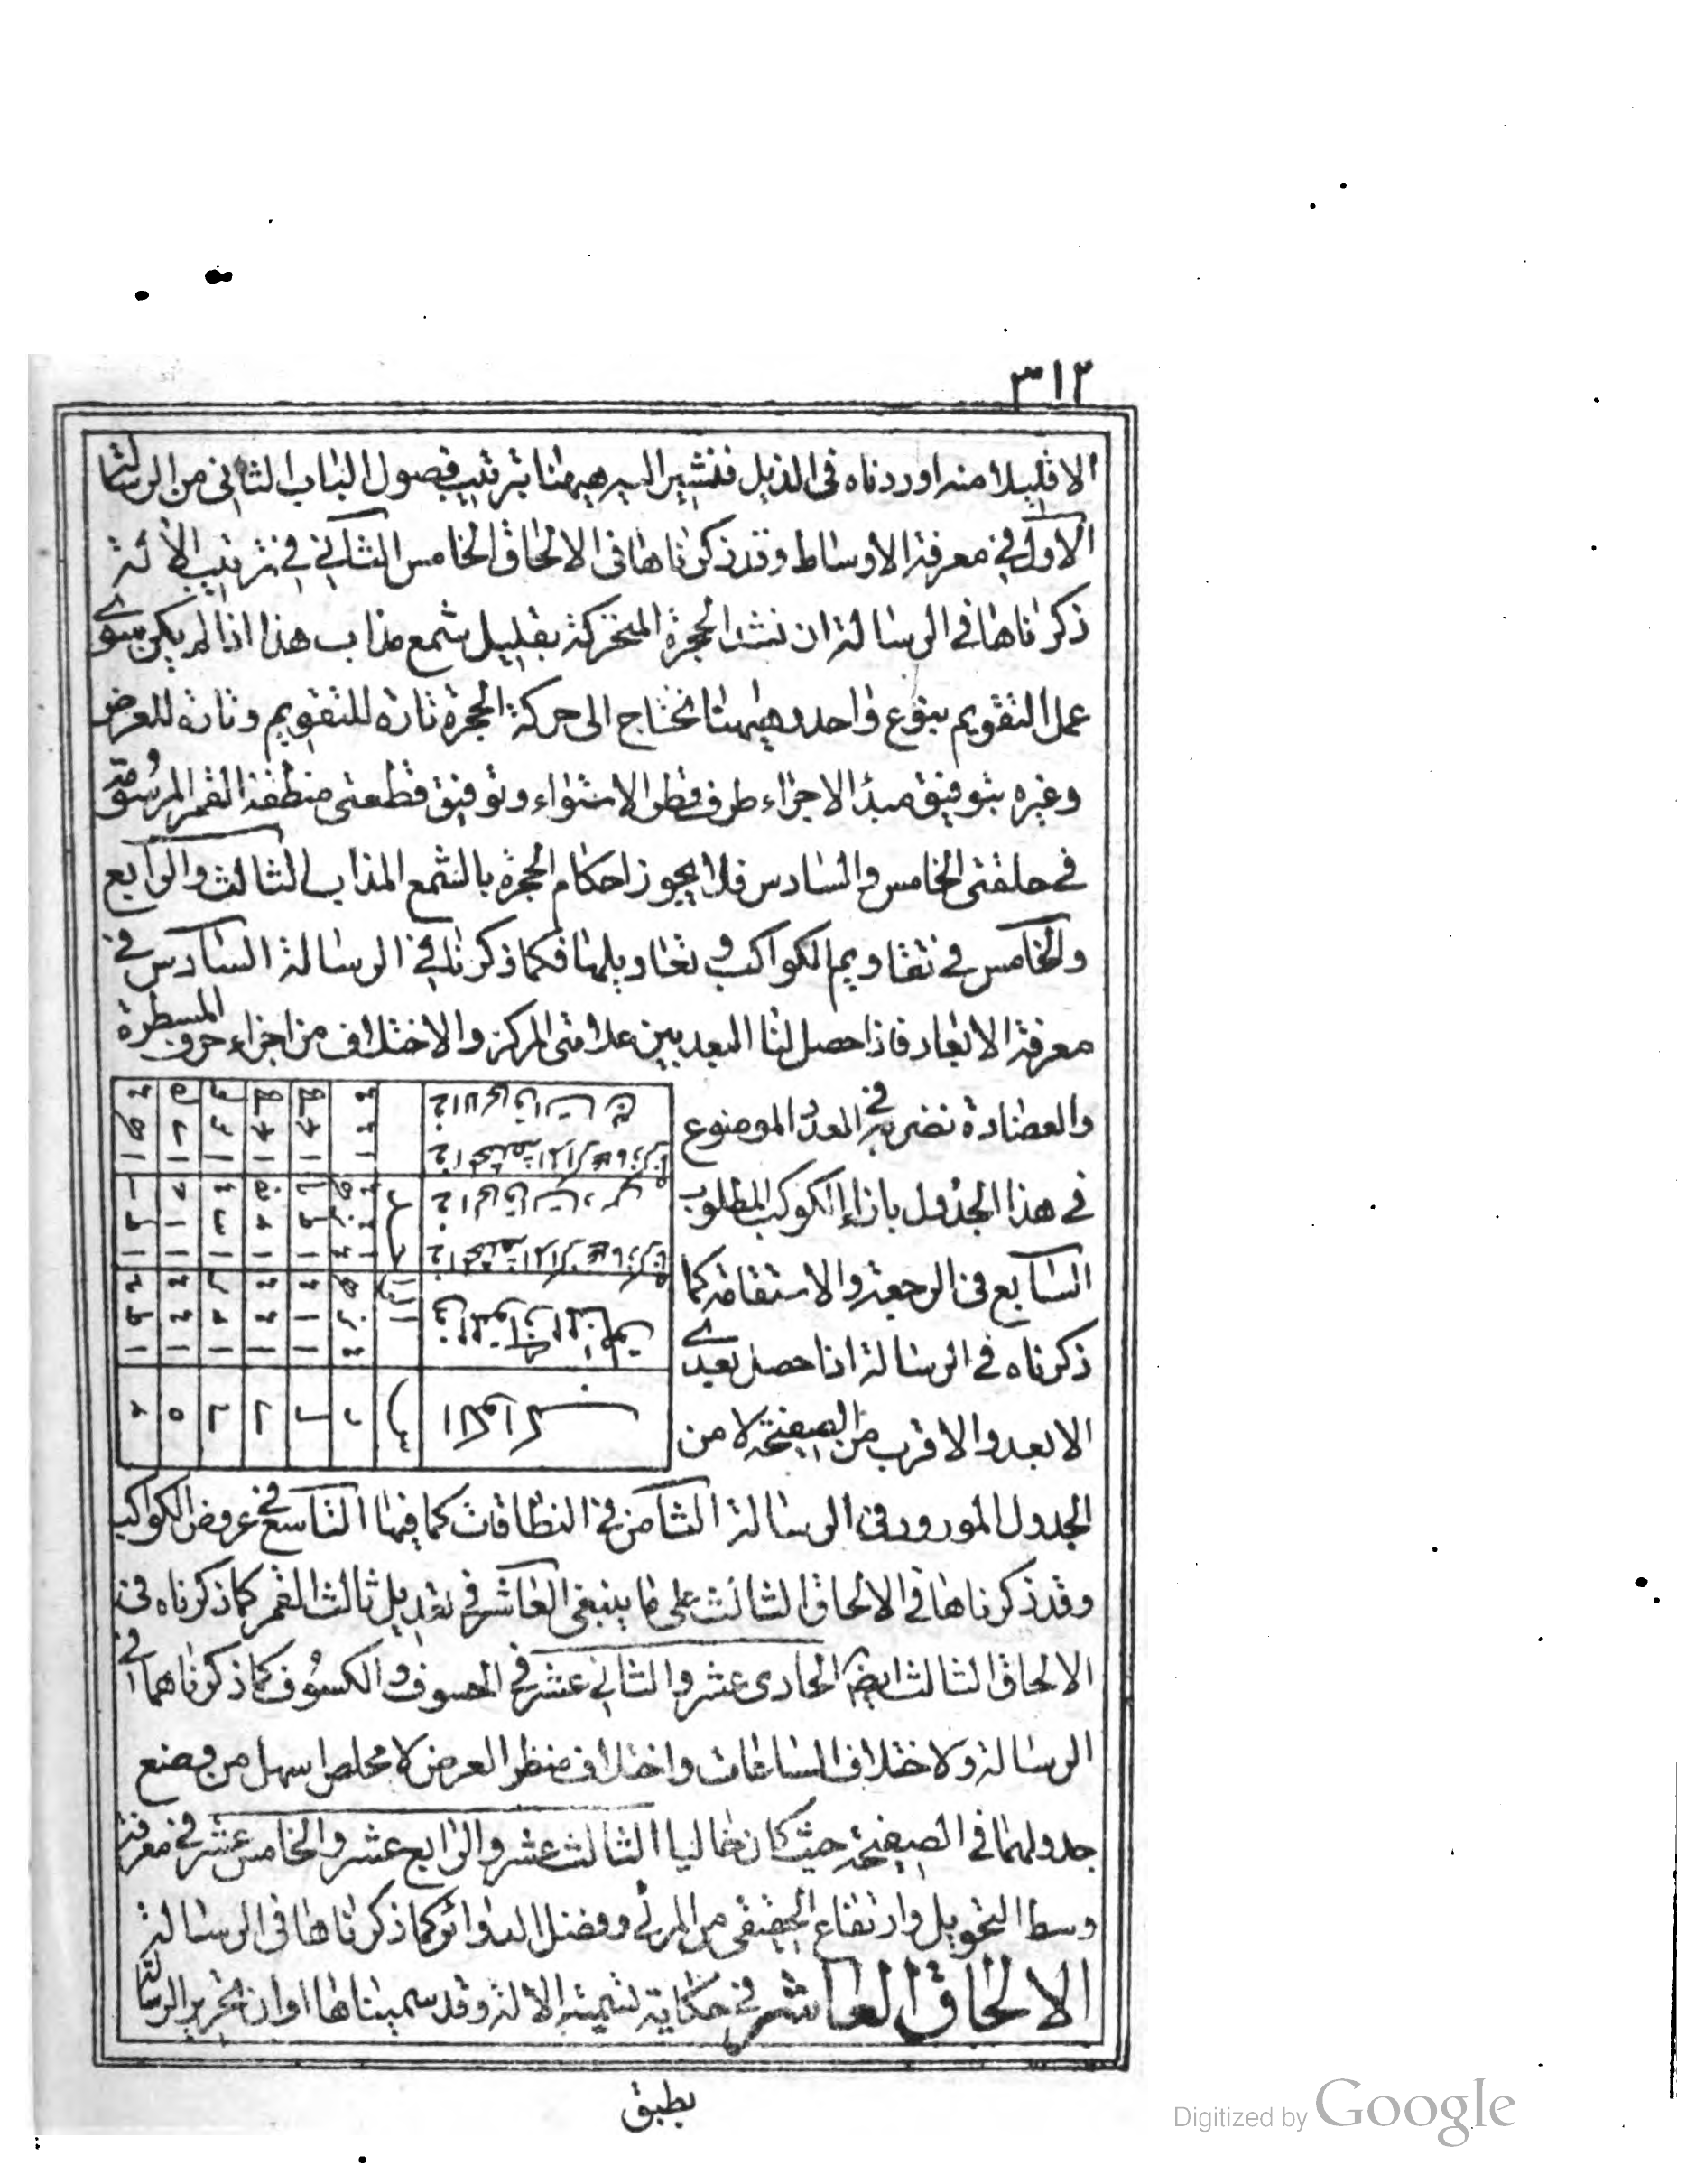 ٣١٢
الا قليلا منه اوردناه فى الذيل فنشير اليه هيهنا بترتيب فصول الباب الثانى من الرسالة
الاول فى معرفة الاوساط وقد ذكرناها فى الالحاق الخامس الثانى فى ترتيب الآلة
ذكرناها فى الرسالة ان نشد الحجرة المتحركة بقليل شمع مذاب هذا اذا لم يكن سوى
عمل التقويم بنوع واحد وهيهنا نحتاج الى حركة الحجرة تارة للتقويم وتارة للعرض
وغيره بتوفيق مبدأ الاجزاء طرف قطر الاستواء وتوفيق قطعتى منطقة القمر المرسومة
فى حلقتى الخامس والسادس فلا يجوز احكام الحجرة بالشمع المذاب الثالث والرابع
والخامس فى تقاويم الكواكب و تعاديلها فكما ذكرنا فى الرسالة السادس فى
معرفة الابعاد فاذا حصل لنا البعد بين علامتى المركز والاختلاف من اجزاء حرف المسطرة
والعضادة نضربه فى العدد الموضوع
فى هذا الجدول بازاء الكوكب المطلوب
السابع فى الرجعة والاستقامة كما
ذكرناه فى الرسالة اذا حصل بعدى
الابعد والاقرب من الصفيحة لا من
الجدول المورود فى الرسالة الثامن فى النطاقات كما فيها التاسع فى عروض الكواكب
وقد ذكرناها فى الالحاق الثالث على ما ينبغى العاشر فى تعديل ثالث القمر كما ذكرناه فى
الالحاق الثالث ايضا الحادى عشر والثانى عشر فى الخسوف والكسوف كما ذكرناهما فى
الرسالة ولاختلاف الساعات واختلاف منظر العرض لا مخلص اسهل من وضع
جدولهما فى الصفيحة حيث كان خاليا الثالث عشر والرابع عشر والخامس عشر فى معرفة
وسط التحويل وارتفاع الحقيقى من المرئى وفضل الدوائر كما ذكرناها فى الرسالة
الالحاق العاشر فى حكاية تسمية الآلة وقد سميناها اوان تحرير الرسالة
يطبق
Digitized by Google